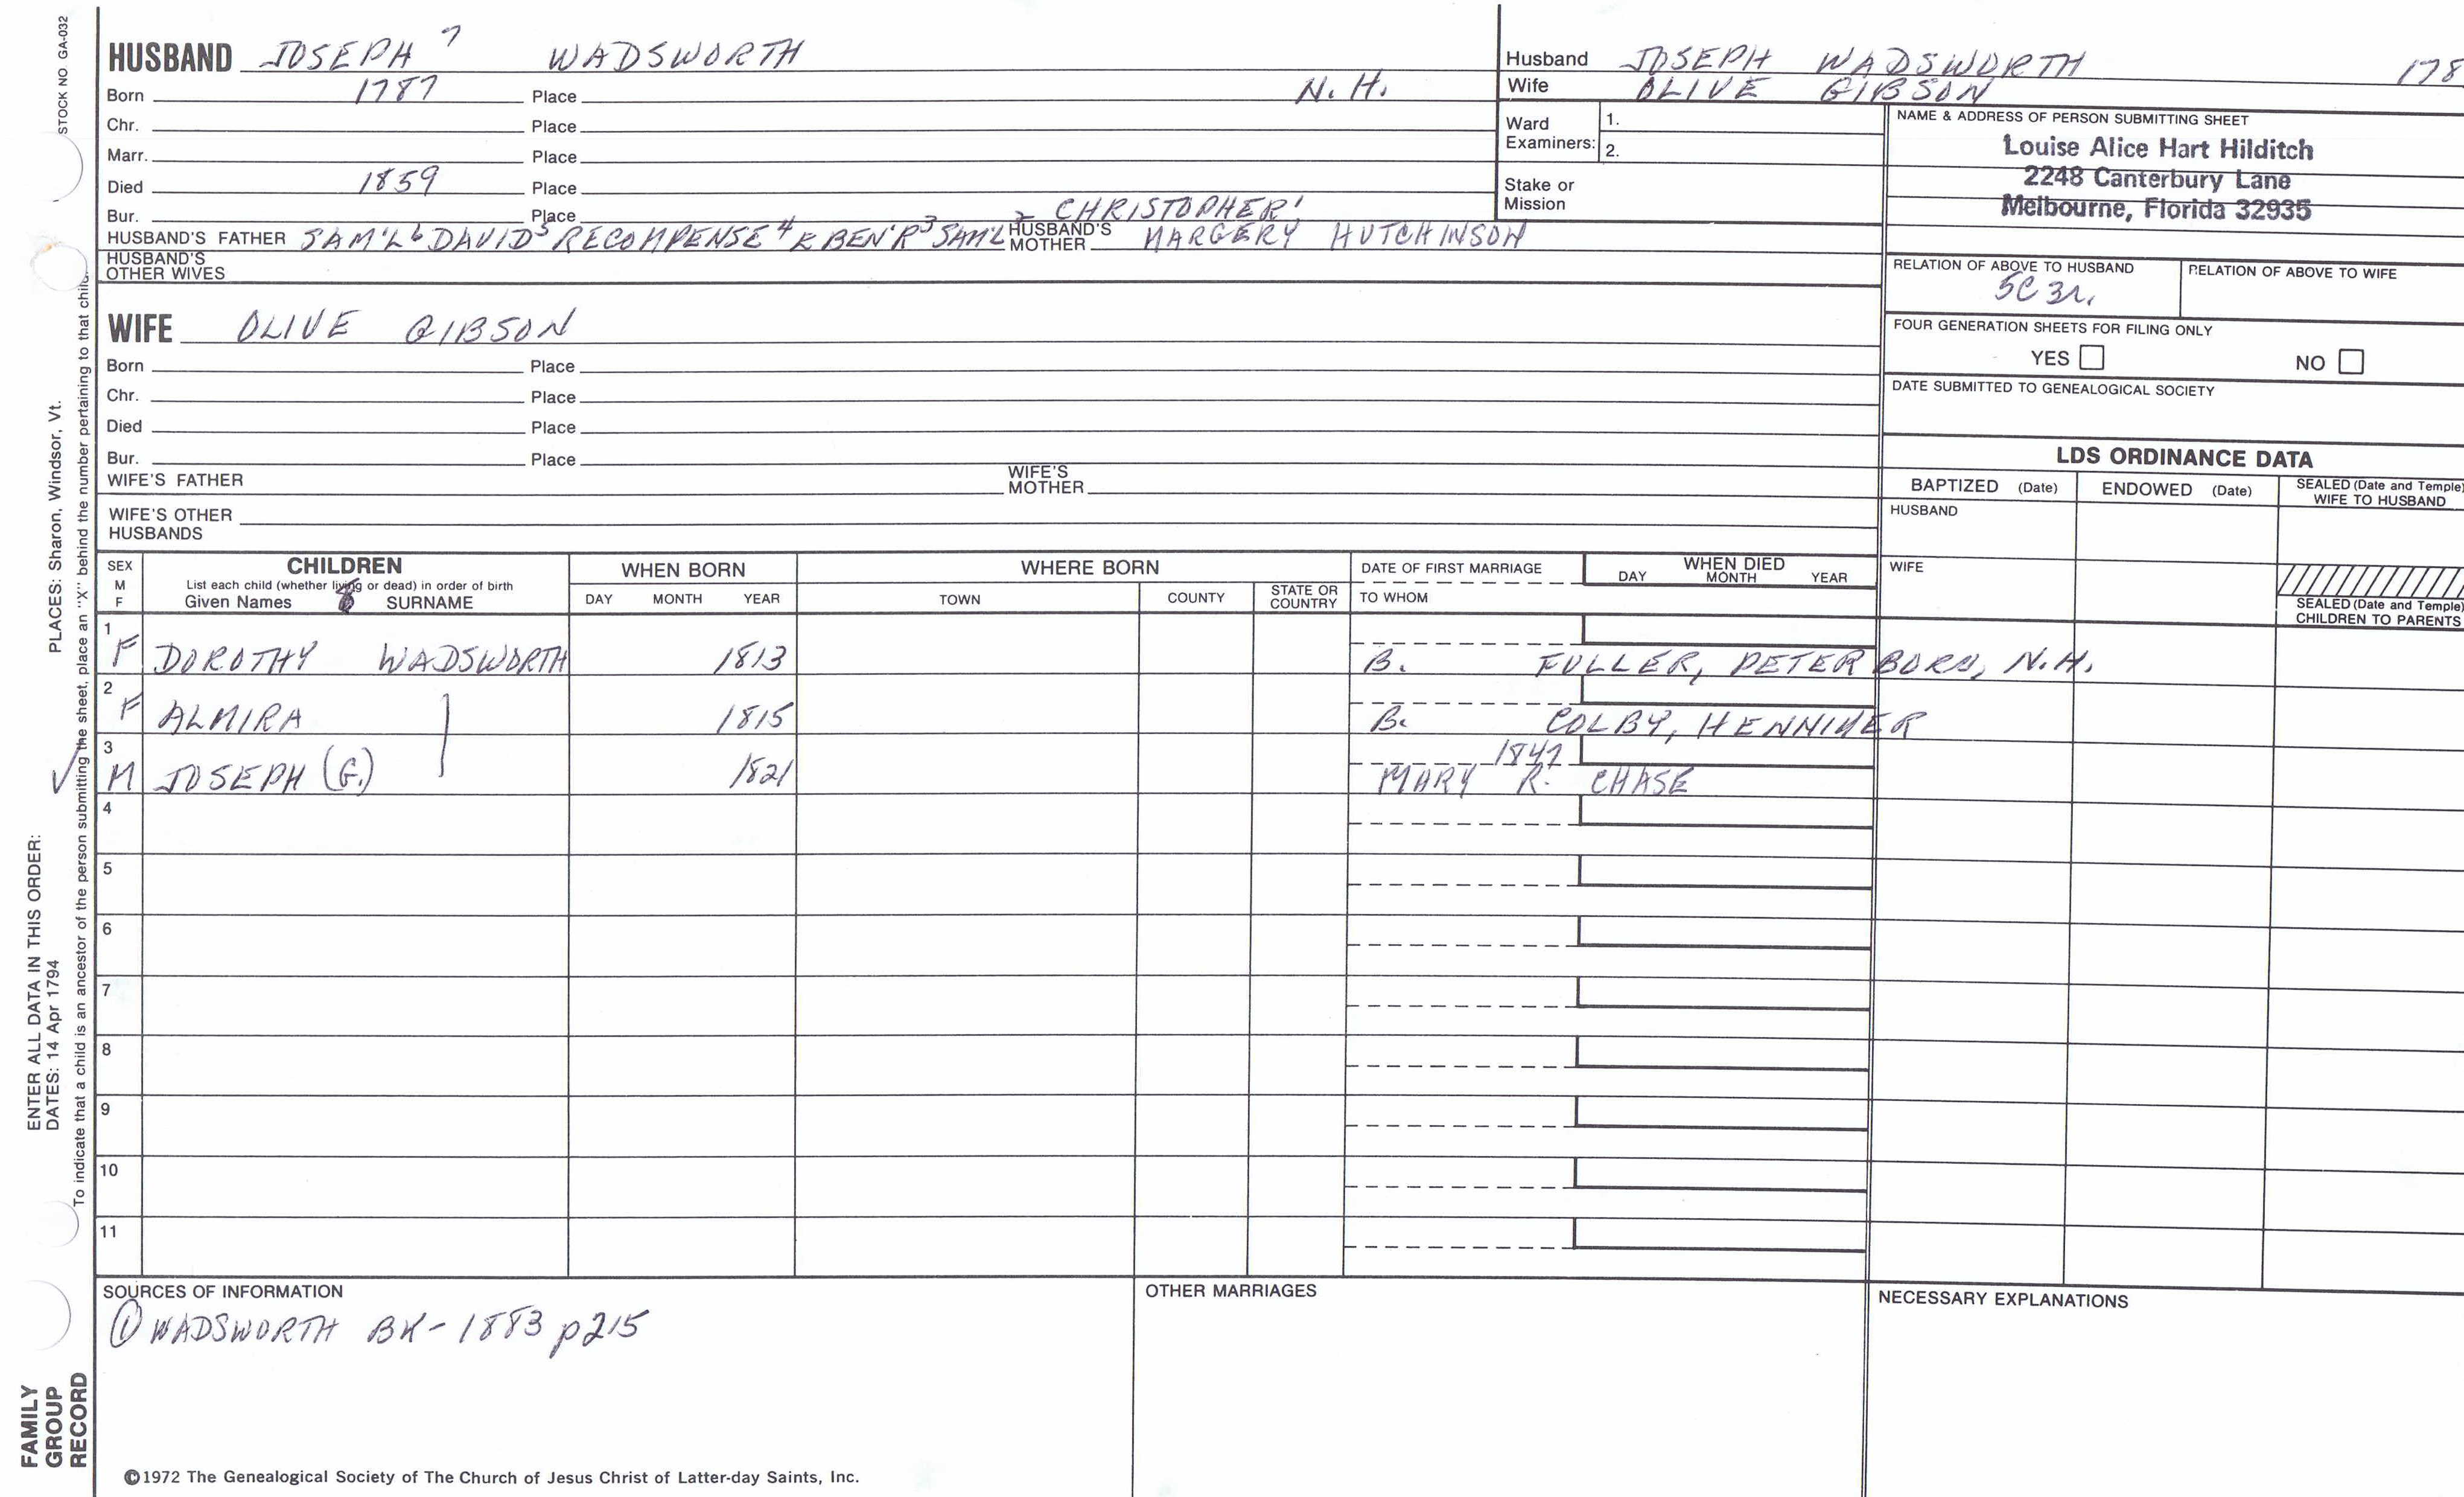 STOCK NO GA-032
HUSBAND JOSEPH 7 WADSWORTH
Born 1787 Place N. H.
Chr. Place
Marr. Place
Died 1859 Place
Bur. Place 2 CHRISTOPHER 1
HUSBAND'S FATHER SAM'L 6 DAVID 5 RECOMPENSE 4 & BEN'R 3 SAM'L HUSBAND'S MOTHER MARGERY HUTCHINSON
HUSBAND'S OTHER WIVES
Husband JOSEPH WADSWORTH 178
Wife OLIVE GIBSON
Ward Examiners: 1.
2.
Stake or Mission
NAME & ADDRESS OF PERSON SUBMITTING SHEET
Louise Alice Hart Hilditch
2248 Canterbury Lane
Melbourne, Florida 32935
RELATION OF ABOVE TO HUSBAND RELATION OF ABOVE TO WIFE
5C 3r.
FOUR GENERATION SHEETS FOR FILING ONLY
YES NO
DATE SUBMITTED TO GENEALOGICAL SOCIETY
WIFE OLIVE GIBSON
Born Place
Chr. Place
Died Place
Bur. Place
WIFE'S FATHER WIFE'S MOTHER
WIFE'S OTHER HUSBANDS
LDS ORDINANCE DATA
BAPTIZED (Date) ENDOWED (Date) SEALED (Date and Temple) WIFE TO HUSBAND
HUSBAND
WIFE
SEALED (Date and Temple) CHILDREN TO PARENTS
SEX M F
CHILDREN
List each child (whether living or dead) in order of birth
Given Names SURNAME
WHEN BORN
DAY MONTH YEAR
WHERE BORN
TOWN COUNTY STATE OR COUNTRY
DATE OF FIRST MARRIAGE
TO WHOM
WHEN DIED
DAY MONTH YEAR
1 F DOROTHY WADSWORTH 1813 B. FULLER, PETERBORO, N.H.
2 F ALMIRA 1815 B. COLBY, HENNIKER
3 M JOSEPH (G.) 1821 1847 MARY R. CHASE
4
5
6
7
8
9
10
11
SOURCES OF INFORMATION
① WADSWORTH BK-1883 p215
OTHER MARRIAGES
NECESSARY EXPLANATIONS
©1972 The Genealogical Society of The Church of Jesus Christ of Latter-day Saints, Inc.
FAMILY GROUP RECORD
ENTER ALL DATA IN THIS ORDER:
DATES: 14 Apr 1794 PLACES: Sharon, Windsor, Vt.
To indicate that a child is an ancestor of the person submitting the sheet, place an "X" behind the number pertaining to that child.